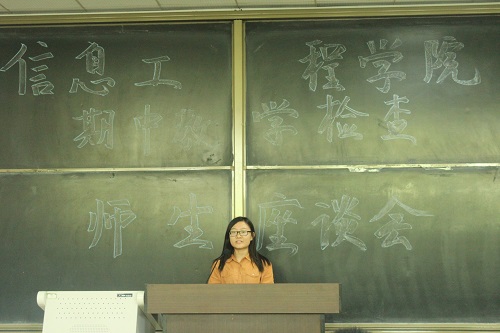 信息工程学院
期中教学检查
师生座谈会